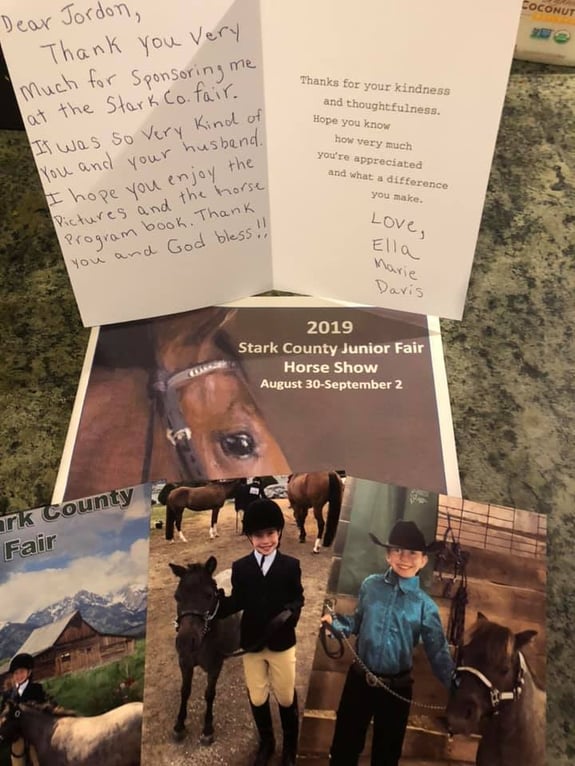 Dear Jordon,
Thank you very
much for Sponsoring me
at the Stark Co. fair.
It was so very kind of
you and your husband.
I hope you enjoy the
Pictures and the horse
Program book. Thank
you and God bless!!
Thanks for your kindness
and thoughtfulness.
Hope you know
how very much
you're appreciated
and what a difference
you make.
Love,
Ella
Marie
Davis
COCONUT
2019
Stark County Junior Fair
Horse Show
August 30-September 2
ark County
Fair